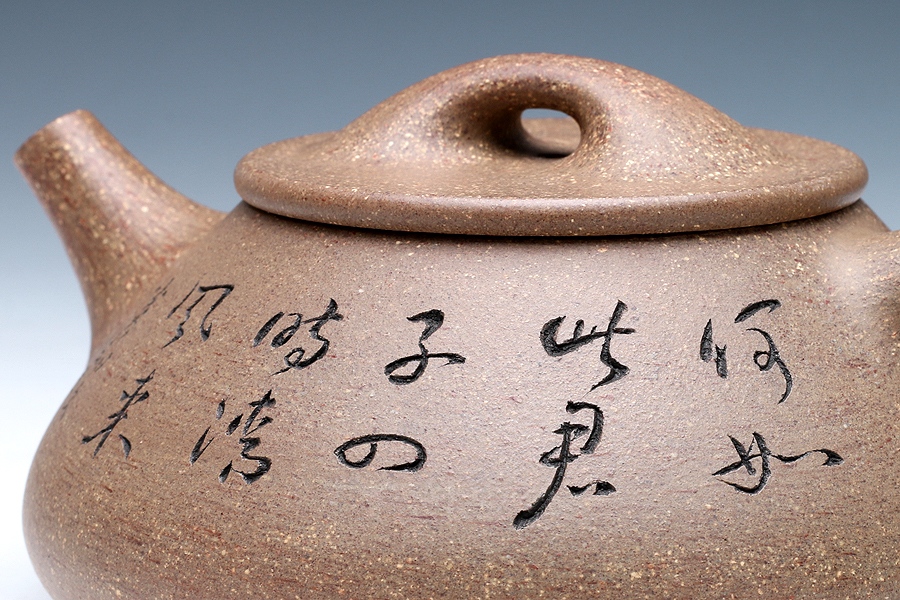 何如
此君
子四
時清
风来